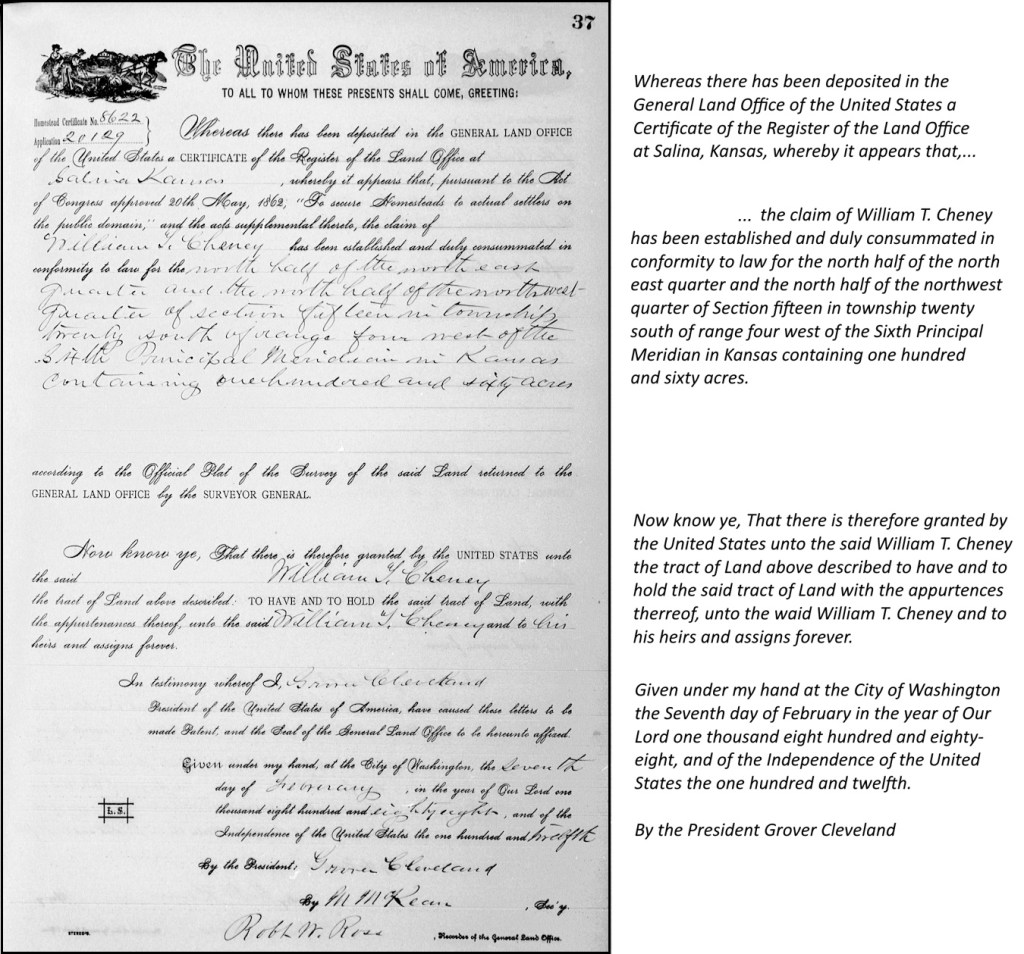 37
The United States of America,
TO ALL TO WHOM THESE PRESENTS SHALL COME, GREETING:
Homestead Certificate No. 8622
Application 20129
Whereas there has been deposited in the GENERAL LAND OFFICE
of the United States a CERTIFICATE of the Register of the Land Office at
Salina Kansas, whereby it appears that, pursuant to the Act
of Congress approved 20th May, 1862, "To secure Homesteads to actual settlers on
the public domain," and the acts supplemental thereto, the claim of
William T. Cheney has been established and duly consummated in
conformity to law for the north half of the north east
quarter and the north half of the northwest
quarter of section fifteen in township
twenty south of range four west of the
Sixth Principal Meridian in Kansas
containing one hundred and sixty acres
according to the Official Plat of the Survey of the said Land returned to the
GENERAL LAND OFFICE by the SURVEYOR GENERAL.
Now know ye, That there is therefore granted by the UNITED STATES unto
the said William T. Cheney
the tract of Land above described: TO HAVE AND TO HOLD the said tract of Land, with
the appurtenances thereof, unto the said William T. Cheney and to his
heirs and assigns forever.
In testimony whereof I, Grover Cleveland
President of the United States of America, have caused these letters to be
made Patent, and the Seal of the General Land Office to be hereunto affixed.
Given under my hand, at the City of Washington, the seventh
day of February, in the year of Our Lord one
thousand eight hundred and eighty eight, and of the
L.S.
Independence of the United States the one hundred and twelfth
By the President: Grover Cleveland
By M McKean, Sec'y.
Robt W. Ross, Recorder of the General Land Office.
Whereas there has been deposited in the
General Land Office of the United States a
Certificate of the Register of the Land Office
at Salina, Kansas, whereby it appears that,...
... the claim of William T. Cheney
has been established and duly consummated in
conformity to law for the north half of the north
east quarter and the north half of the northwest
quarter of Section fifteen in township twenty
south of range four west of the Sixth Principal
Meridian in Kansas containing one hundred
and sixty acres.
Now know ye, That there is therefore granted by
the United States unto the said William T. Cheney
the tract of Land above described to have and to
hold the said tract of Land with the appurtences
therreof, unto the waid William T. Cheney and to
his heirs and assigns forever.
Given under my hand at the City of Washington
the Seventh day of February in the year of Our
Lord one thousand eight hundred and eighty-
eight, and of the Independence of the United
States the one hundred and twelfth.
By the President Grover Cleveland